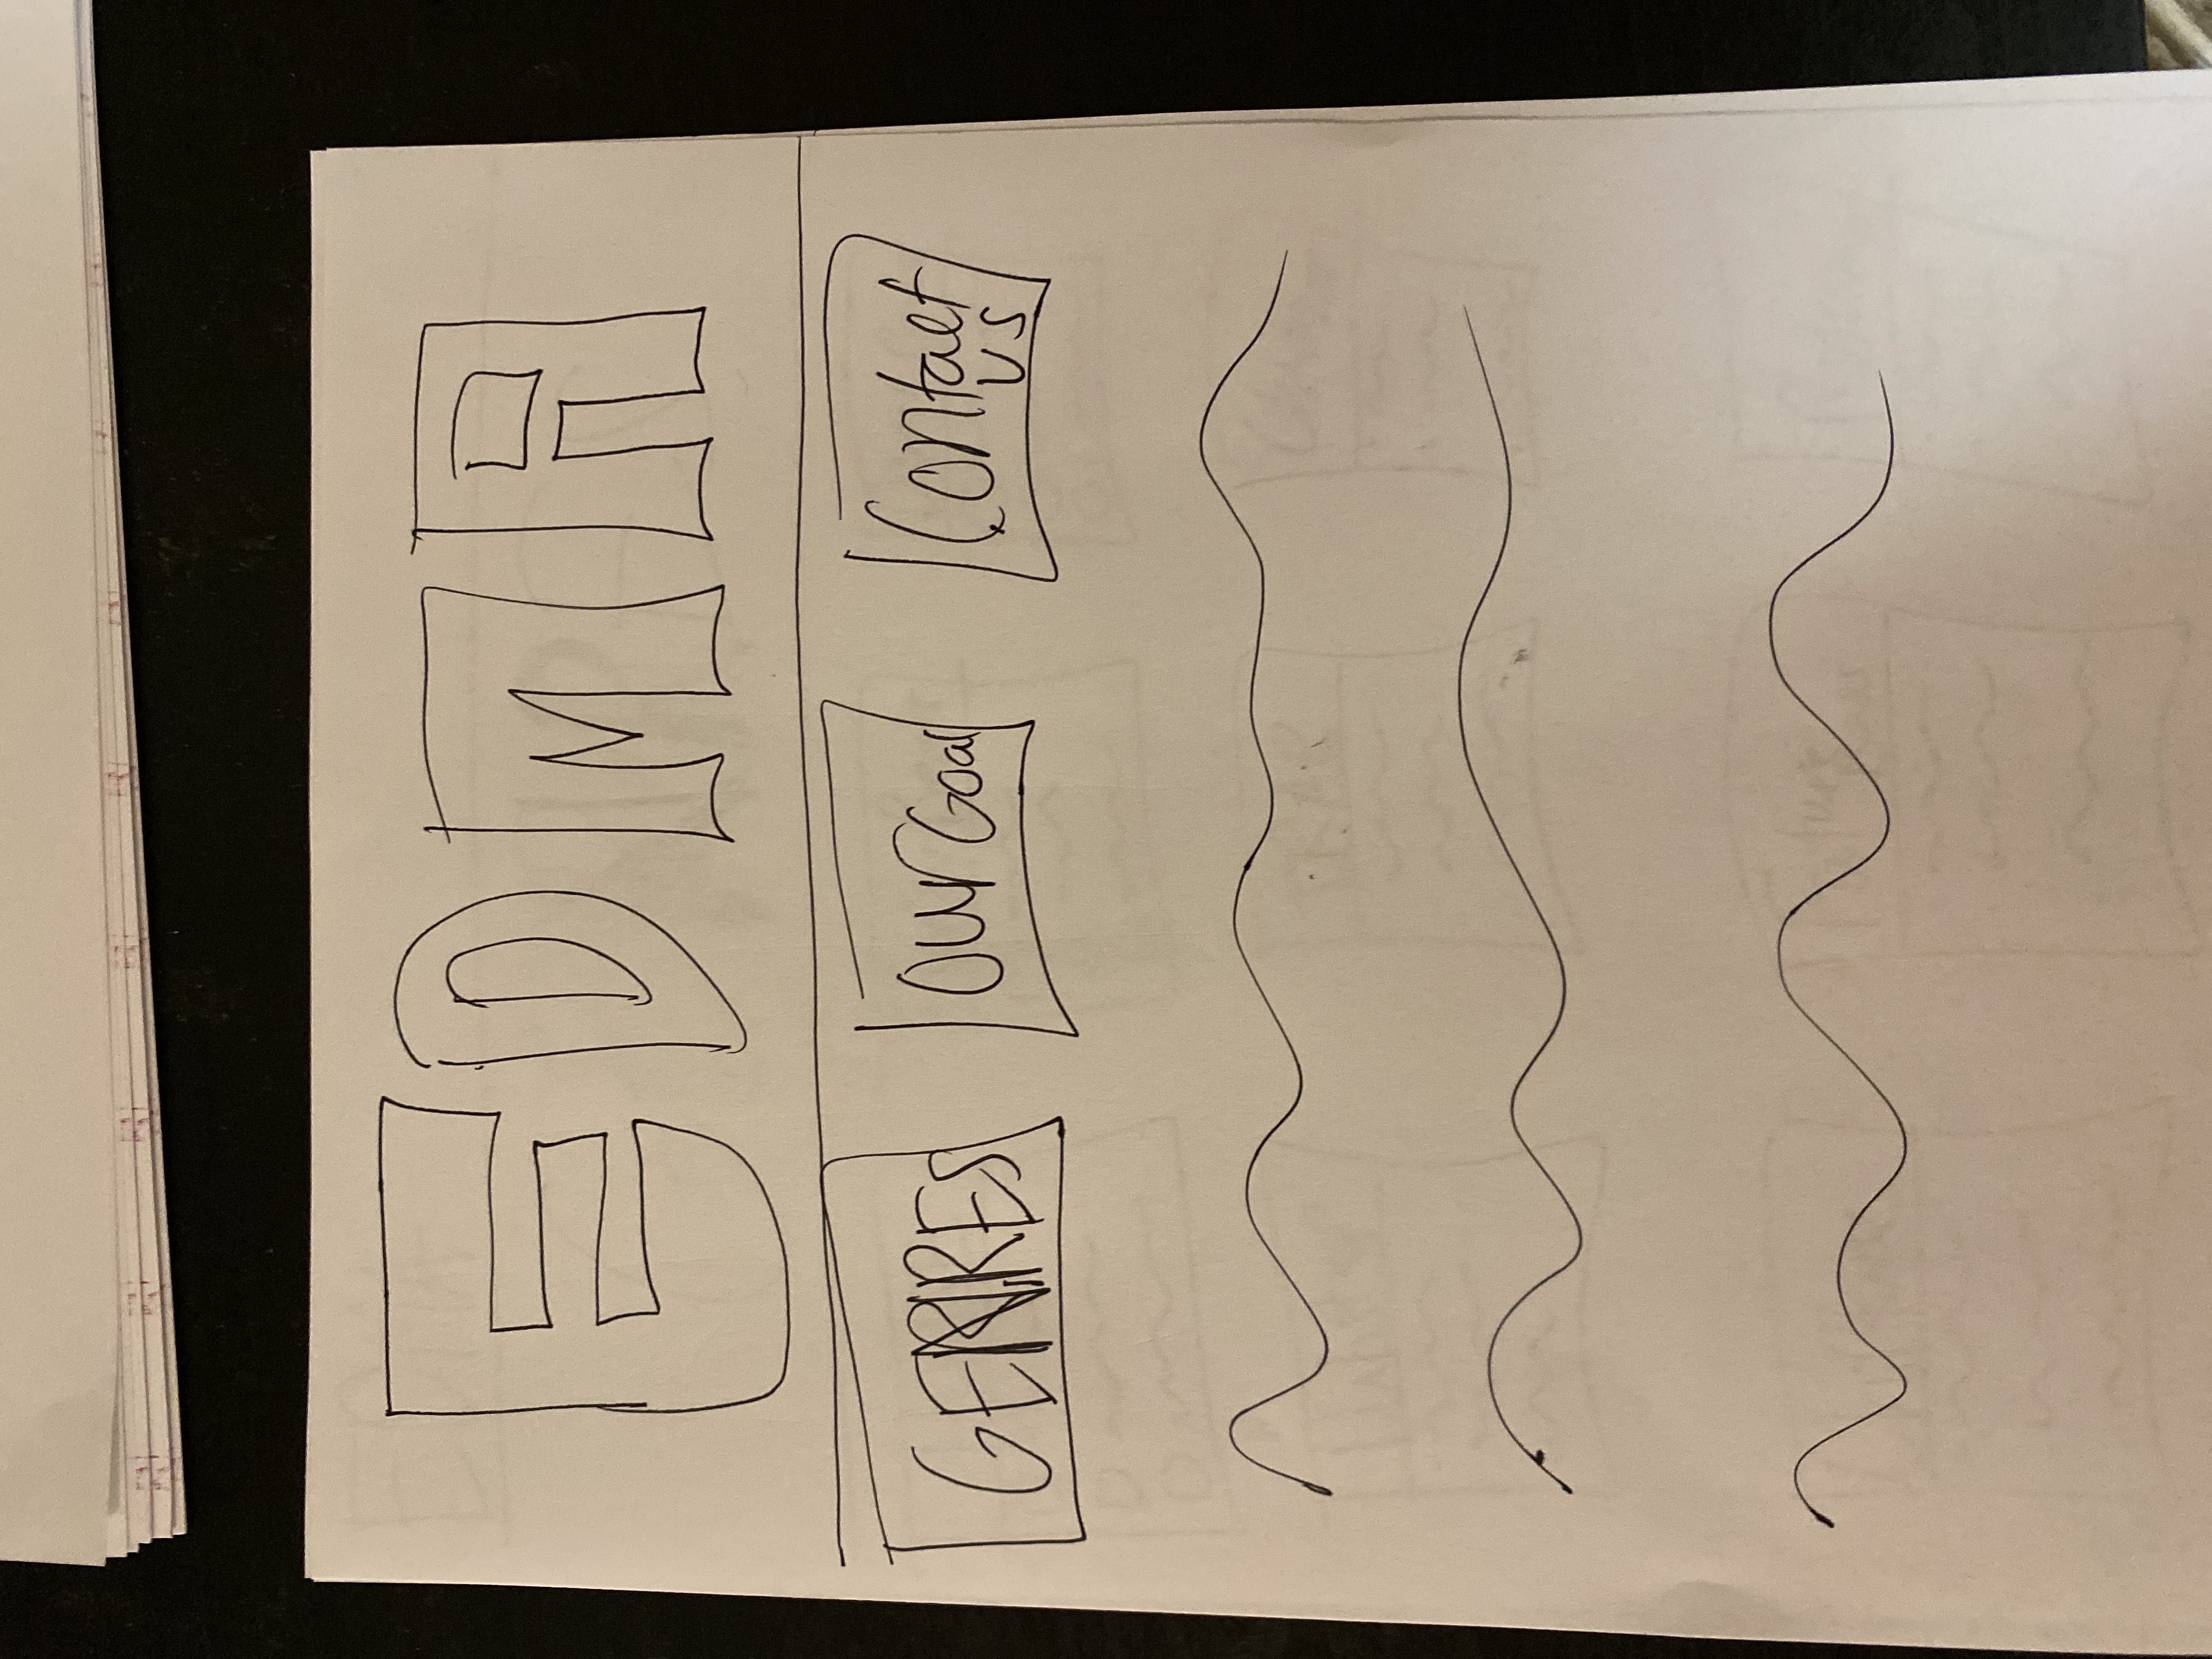 EDMA
GENRES Our Goal Contact
us